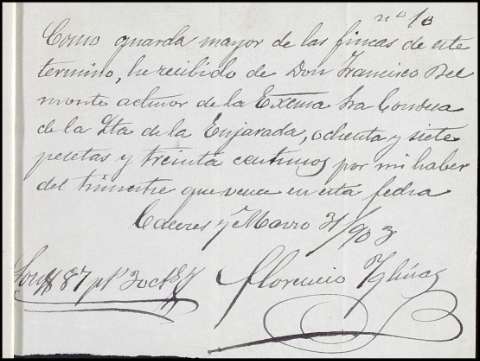 nº 10
Como guarda mayor de las fincas de este
termino, he recibido de Don Francisco Bel
monte admor de la Excma Sra Condesa
de la Qta de la Enjarada, ochenta y siete
pesetas y treinta centimos por mi haber
del trimestre que vence en esta fecha
Caceres y Marzo 31/903
Son 87 pts 30 cts
Florencio